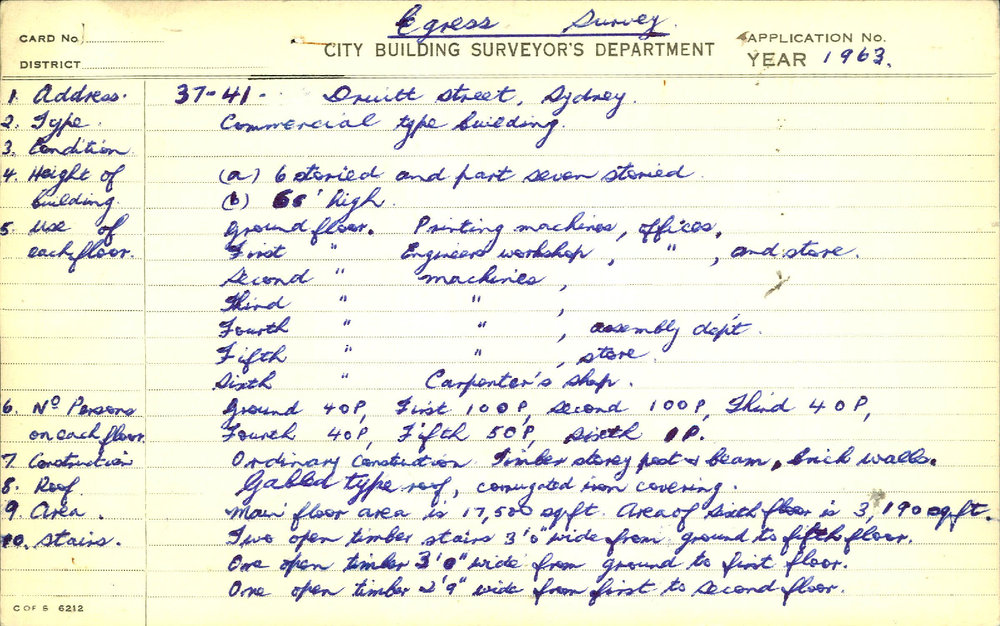 Egress Survey.
CARD No.
CITY BUILDING SURVEYOR'S DEPARTMENT
APPLICATION No.
DISTRICT
YEAR 1963.
1. Address. 37-41. Druitt Street, Sydney.
2. Type. Commercial type building.
3. Condition
4. Height of (a) 6 storied and part seven storied.
building. (b) 66' high.
5. Use of Ground floor. Printing machines, offices,
each floor. First " Engineers workshop, ", and store.
Second " machines,
Third " ",
Fourth " ", assembly dep't.
Fifth " ", store.
Sixth " Carpenter's shop.
6. No Persons Ground 40P, First 100P, Second 100P, Third 40P,
on each floor. Fourth 40P, Fifth 50P, Sixth 1P.
7. Construction Ordinary Construction Timber storey post & beam, brick walls.
8. Roof. Gabled type roof, corrugated iron covering.
9. Area. Main floor area is 17,500 sq ft. Area of Sixth floor is 3,190 sq ft.
10. Stairs. Two open timber stairs 3'0" wide from ground to fifth floor.
One open timber 3'0" wide from ground to first floor.
One open timber 2'9" wide from first to second floor.
C OF S 6212